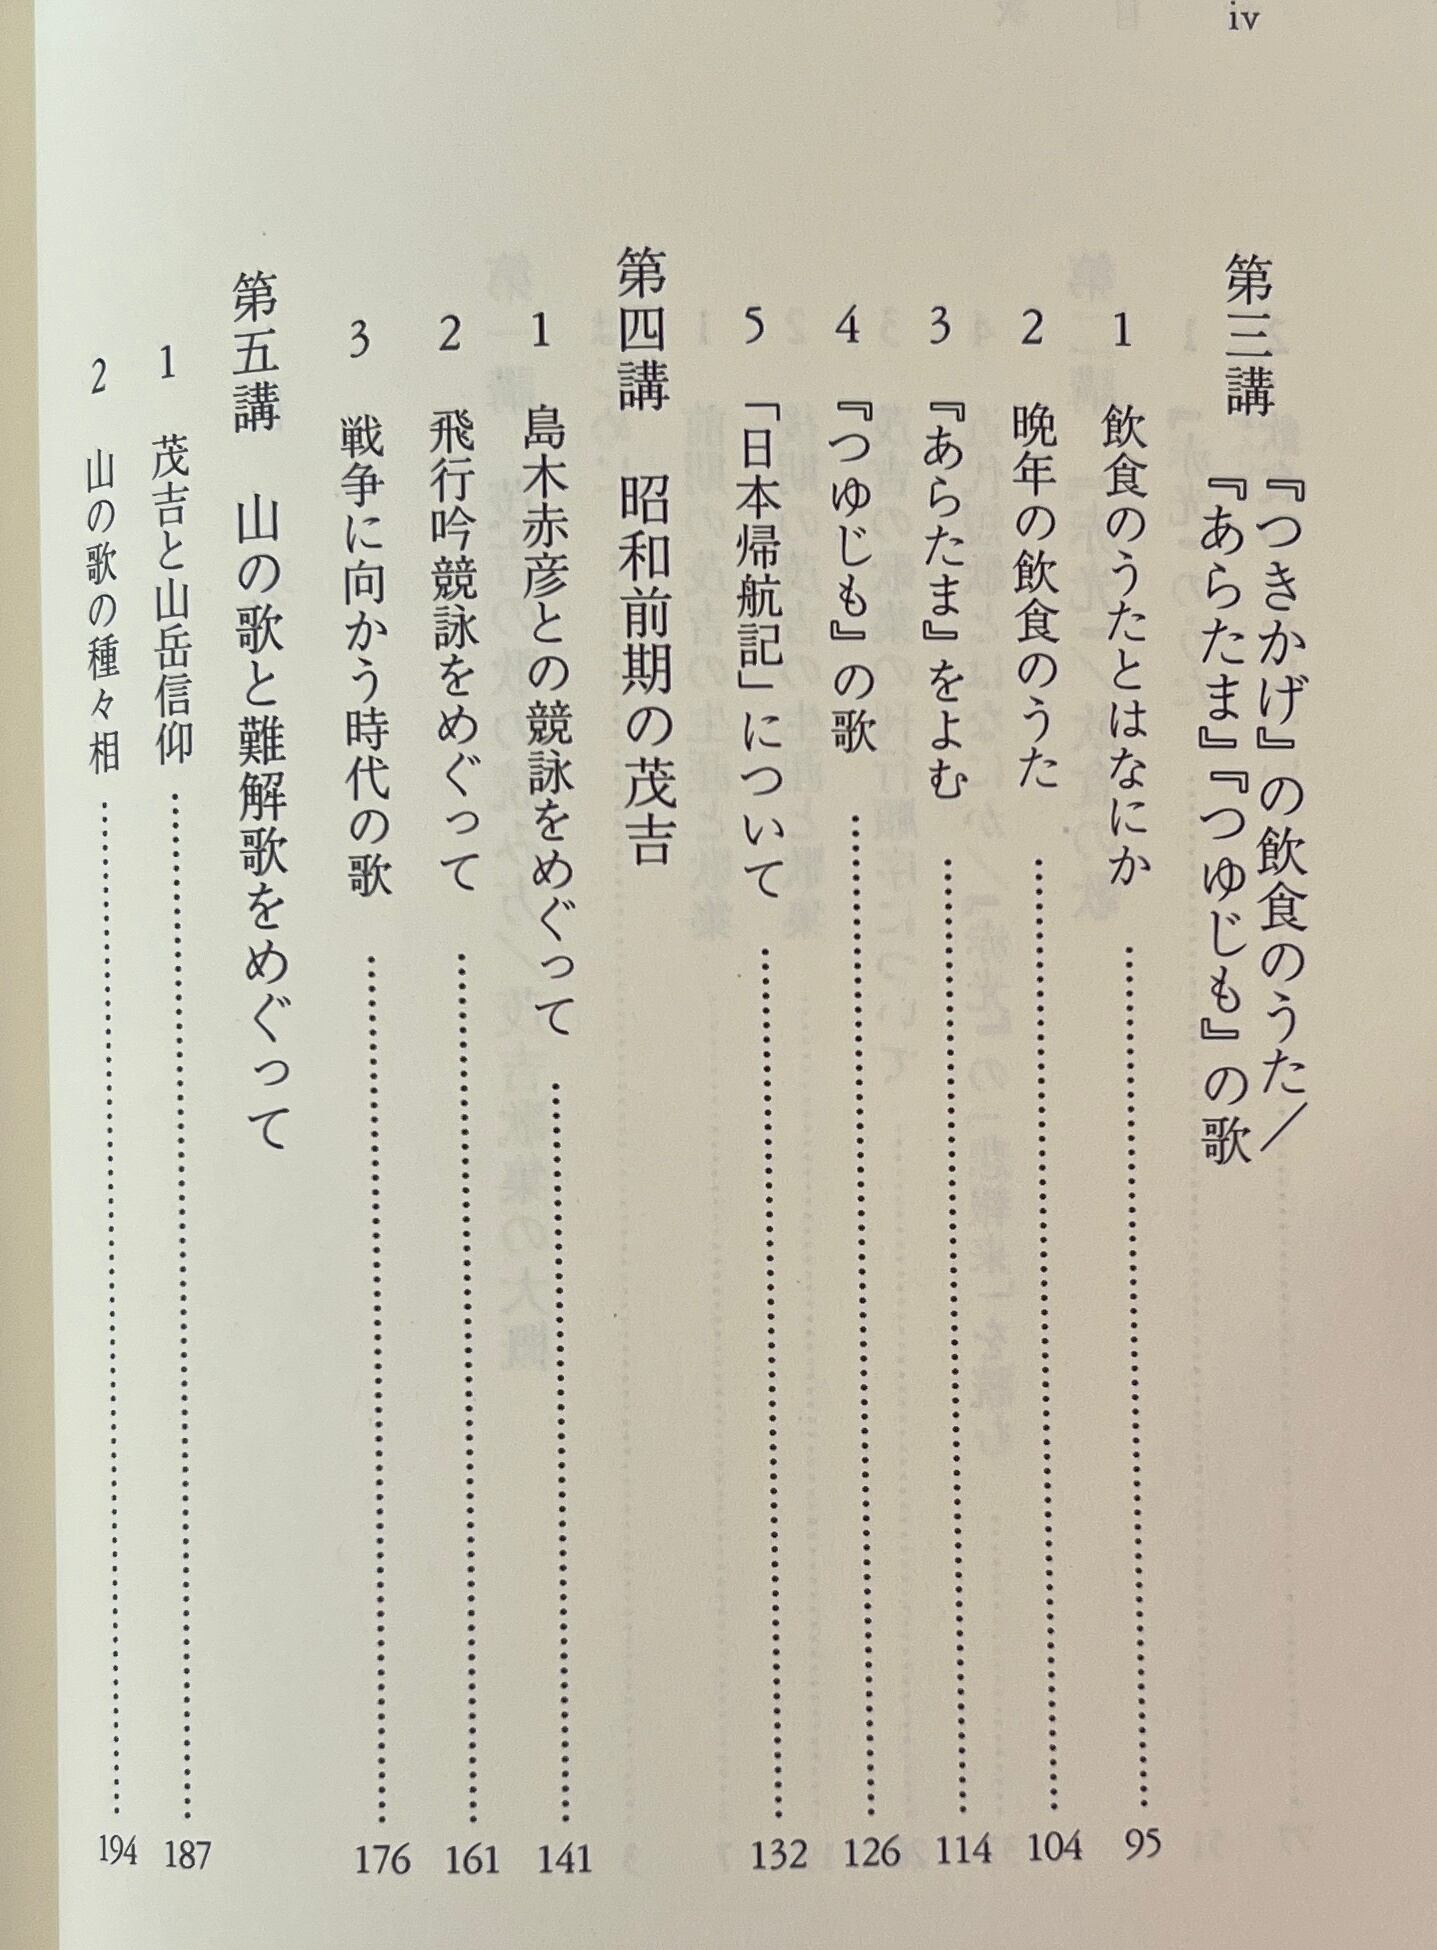 iv
第三講　『つきかげ』の飲食のうた／
『あらたま』『つゆじも』の歌
1　飲食のうたとはなにか……95
2　晩年の飲食のうた……104
3　『あらたま』をよむ……114
4　『つゆじも』の歌……126
5　「日本帰航記」について……132
第四講　昭和前期の茂吉
1　島木赤彦との競詠をめぐって……141
2　飛行吟競詠をめぐって……161
3　戦争に向かう時代の歌……176
第五講　山の歌と難解歌をめぐって
1　茂吉と山岳信仰……187
2　山の歌の種々相……194